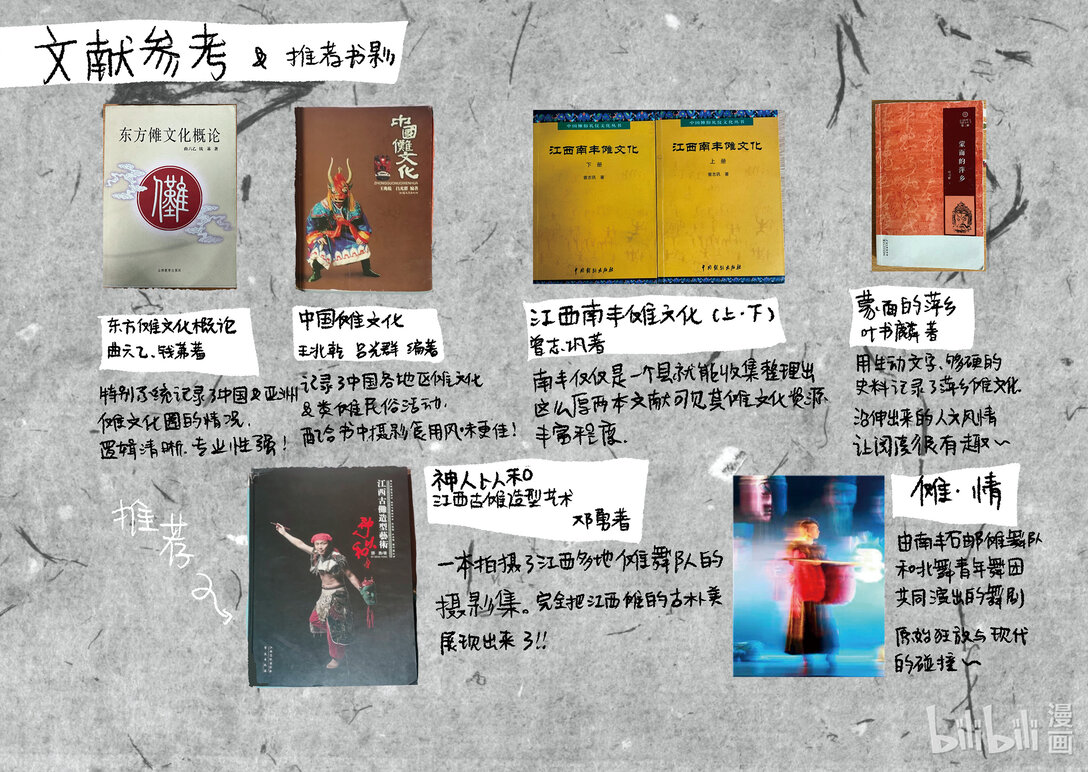 文献参考 & 推荐书影
东方傩文化概论
曲六乙 钱茀 著
儺
中國傩文化
ZHONGGUONUOWENHUA
王兆乾 吕光群 编著
中国傩俗礼仪文化丛书
江西南丰傩文化
下册
曾志巩 著
中国戏剧出版社
中国傩俗礼仪文化丛书
江西南丰傩文化
上册
曾志巩 著
中国戏剧出版社
蒙面的萍乡
东方傩文化概论
曲六乙、钱茀著
特别系统记录了中国&亚洲
傩文化圈的情况.
逻辑清晰.专业性强!
中国傩文化
王兆乾 吕光群 编著
记录了中国各地区傩文化
&类傩民俗活动.
配合书中摄影食用风味更佳!
江西南丰傩文化(上·下)
曾志巩著
南丰仅仅是一个县就能收集整理出
这么厚两本文献可见其傩文化资源
丰富程度.
蒙面的萍乡
叶书麟 著
用生动文字、够硬的
史料记录了萍乡傩文化.
沿伸出来的人文风情
让阅读很有趣~
推荐
江西古傩造型藝術
神人卜人和
江西古傩造型艺术
邓勇著
一本拍摄了江西多地傩舞队的
摄影集。完全把江西傩的古朴美
展现出来了!!
傩·情
由南丰石邮傩舞队
和北舞青年舞团
共同演出的舞剧
原始狂放与现代
的碰撞~
bilibili 漫画